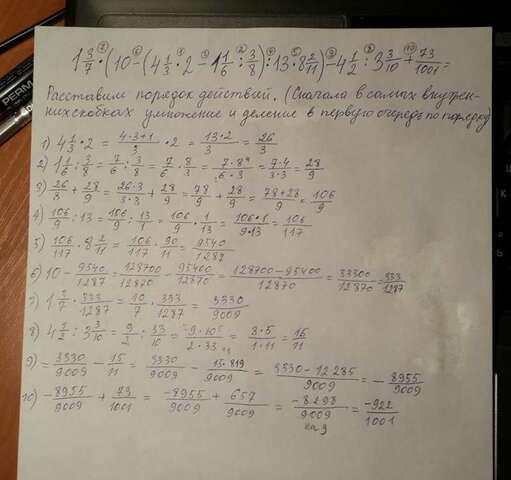 PERM
1 3/7 · (10 - (4 1/3 · 2 - 1 1/6 : 3/8) : 13 · 8 2/11) - 4 1/2 : 3 3/10 + 73/1001 =
Расставим порядок действий. (Сначала в самых внутрен-
них скобках умножение и деление в первую очередь по порядку)
1) 4 1/3 · 2 = (4·3+1)/3 · 2 = (13·2)/3 = 26/3
2) 1 1/6 : 3/8 = 7/6 : 3/8 = 7/6 · 8/3 = (7·8)/(6·3) = (7·4)/(3·3) = 28/9
3) 26/3 + 28/9 = (26·3)/(3·3) + 28/9 = 78/9 + 28/9 = (78+28)/9 = 106/9
4) 106/9 : 13 = 106/9 : 13/1 = 106/9 · 1/13 = (106·1)/(9·13) = 106/117
5) 106/117 · 8 2/11 = 106/117 · 90/11 = 9540/1287
6) 10 - 9540/1287 = 128700/12870 - 95400/12870 = (128700-95400)/12870 = 33300/12870 = 333/1287
7) 1 3/7 · 333/1287 = 10/7 · 333/1287 = 3330/9009
8) 4 1/2 : 3 3/10 = 9/2 : 33/10 = (9·10)/(2·33) = (3·5)/(1·11) = 15/11
9) = 3330/9009 - 15/11 = 3330/9009 - (15·819)/9009 = (3330-12285)/9009 = -8955/9009
10) -8955/9009 + 73/1001 = -8955/9009 + 657/9009 = -8298/9009 = -922/1001
на 9